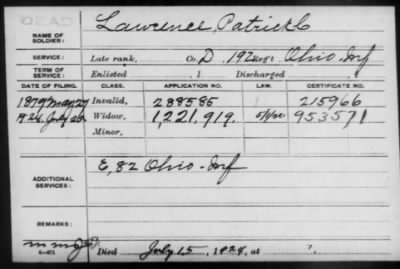 DEAD
NAME OF SOLDIER: Lawrence, Patrick C
SERVICE: Late rank, Co. D, 192 Reg't Ohio Inf
TERM OF SERVICE: Enlisted , 1 Discharged , 1
DATE OF FILING. CLASS. APPLICATION NO. LAW. CERTIFICATE NO.
1879 May 27 Invalid, 288585 215966
1924 July 26 Widow, 1,221,919. 953571
Minor,
ADDITIONAL SERVICES: E, 82 Ohio Inf
REMARKS:
Died July 15, 1924, at ?